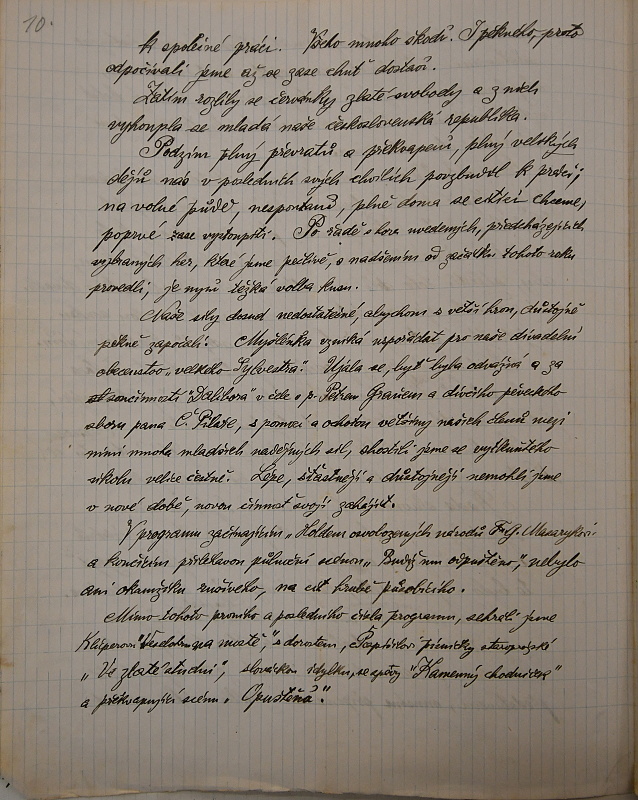 10.
k společné práci. Všeho mnoho škodí. I pěkného, proto
odpočívali jsme až se zase chuť dostaví.
Zatím rozlily se červánky zlaté svobody a z nich
vyhoupla se mladá naše československá republika.
Podzim plný převratů a překvapení, plný velkých
dějů nás v posledních svých chvílích povzbudil k práci,
na volné půdě, nespoutaní, plně doma se cítíci chceme,
poprvé zase vystoupiti. Po řadě shora uvedených, předcházejících
vybraných her, které jsme pečlivě, s nadšením od začátku tohoto roku
provedli, je nyní těžká volba kusu.
Naše síly dosud nedostatečné, abychom s větší hrou, důstojně
pěkně započali. Myšlénka vzniká uspořádat pro naše divadelní
obecenstvo „velkého Sylvestra". Ujala se, byť byla odvážná a za
součinnosti "Dalibora" v čele s p. Petrem Grauem a dívčího pěveckého
sboru pana Č. Pilaře, s pomocí a ochotou většiny našich členů mezi
nimi mnoha mladších nadějných sil, zhostili jsme se vytknutého
úkolu velice čestně. Lépe, šťastněji a důstojněji nemohli jsme
v nové době, novou činnost svoji zahájit.
V programu začínajícím „Holdem osvobozených národů T. G. Masarykovi
a končícím přástkavou půlnoční scénou „Budiž mu odpuštěno", nebylo
ani okamžiku rušivého, na cit hrubě působícího.
Mimo tohoto prvního a posledního čísla programu, sehráli jsme
Klicperovu "Veselohru na mostě," s dorostem, písničky staropražské
„Ve zlaté studni", slováckou idylku, se zpěvy "Kamenný chodníček"
a překvapující scénu „Opuštěná".